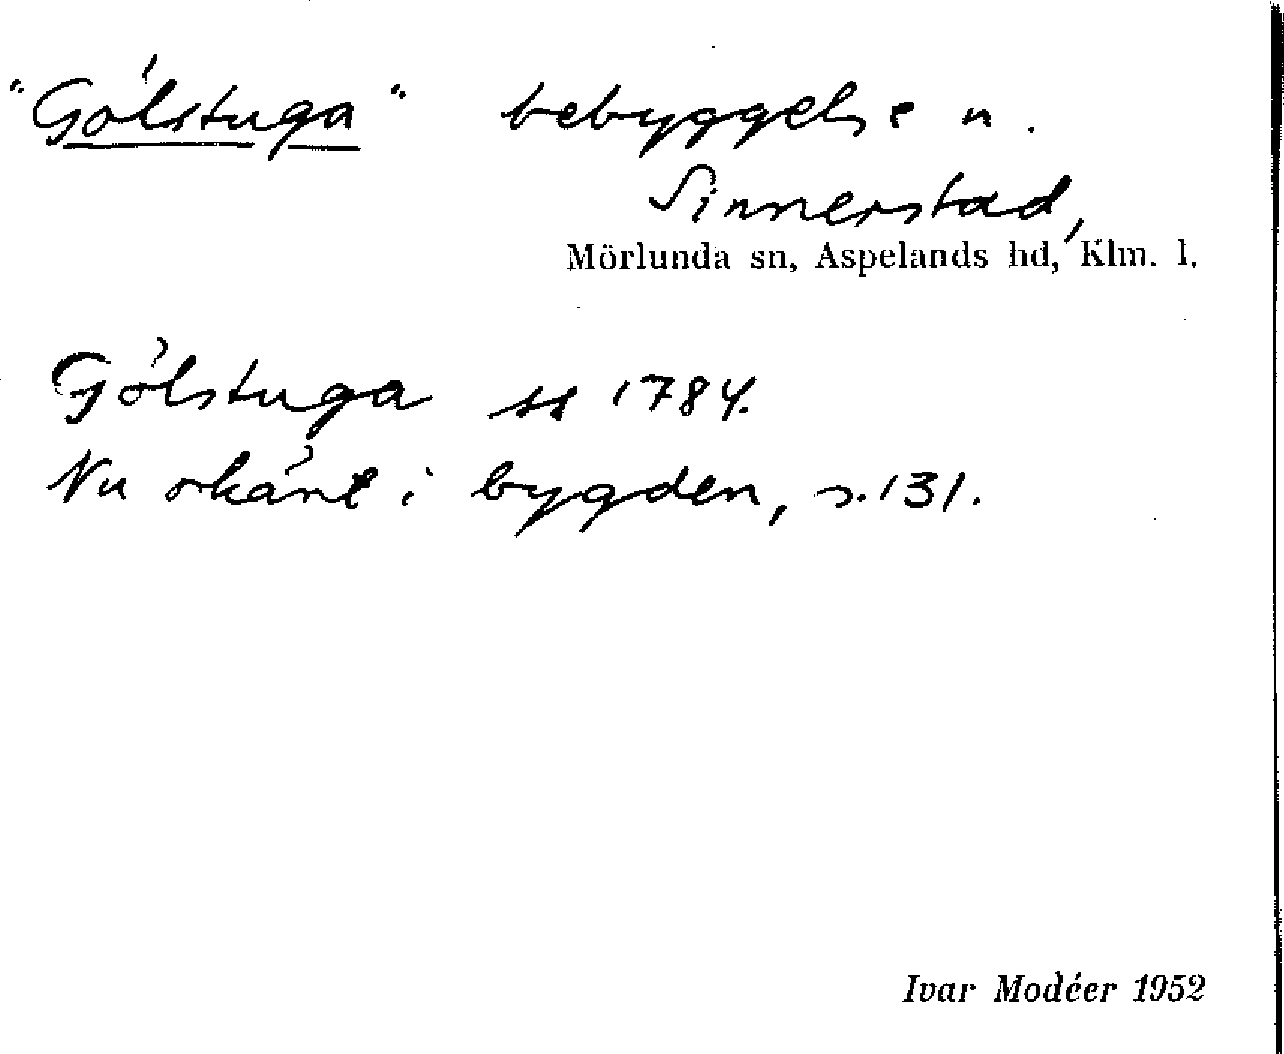 "Gölstuga" bebyggelse u.
Sinnerstad,
Mörlunda sn, Aspelands hd, Klm. l.
Gölstuga 1784.
Nu okänt i bygden, s. 131.
Ivar Modéer 1952